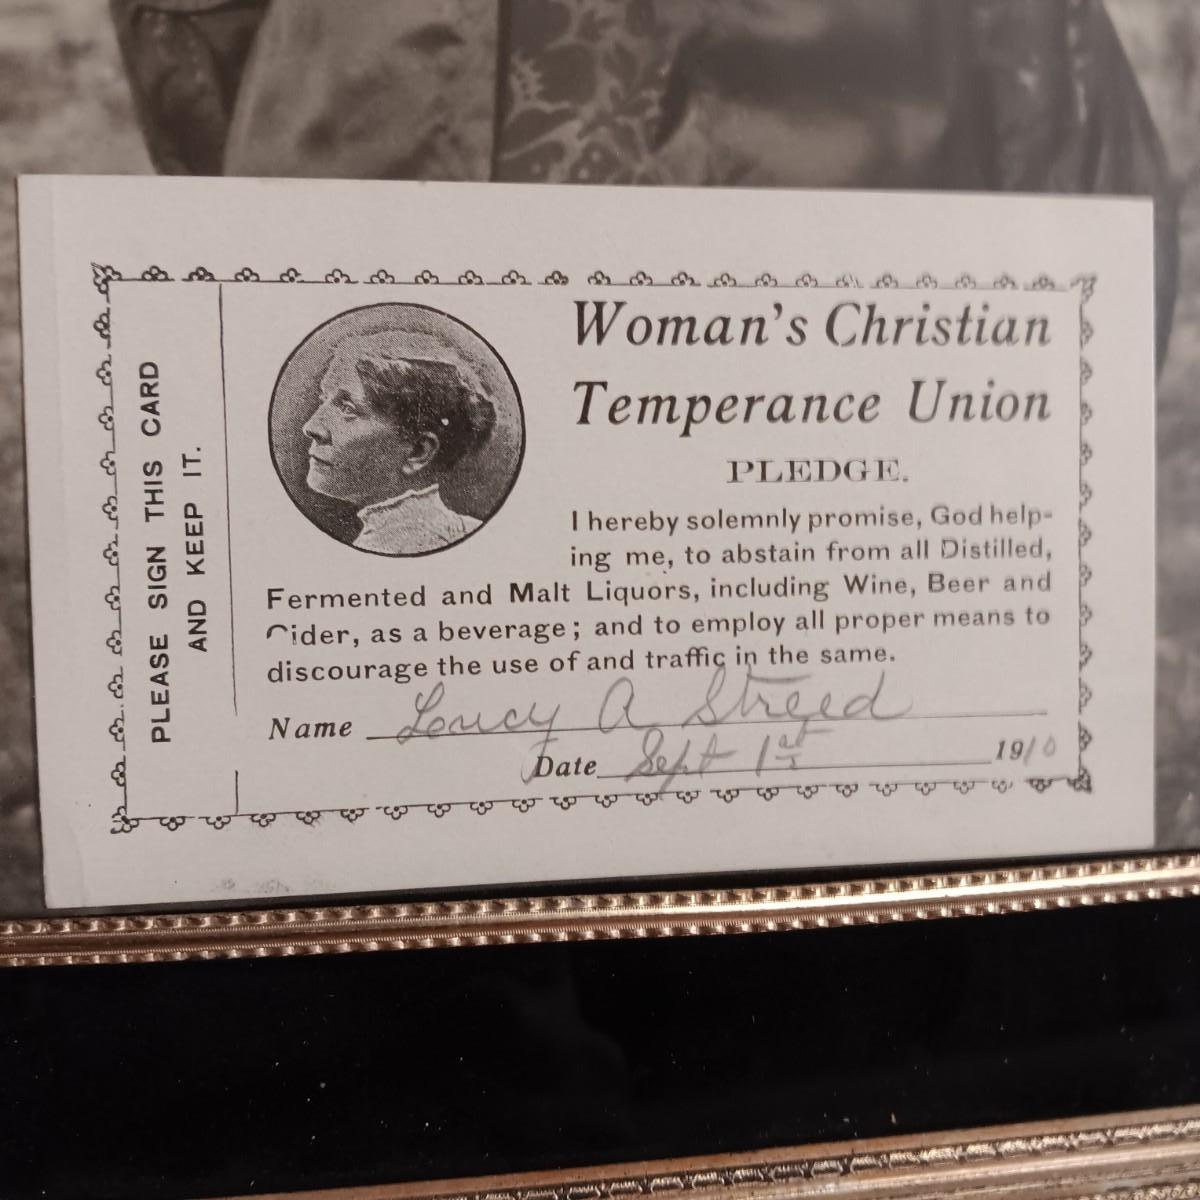 PLEASE SIGN THIS CARD
AND KEEP IT.
Woman's Christian
Temperance Union
PLEDGE.
I hereby solemnly promise, God help-
ing me, to abstain from all Distilled,
Fermented and Malt Liquors, including Wine, Beer and
Cider, as a beverage; and to employ all proper means to
discourage the use of and traffic in the same.
Name Loucy A Streed
Date Sept 1st 1910